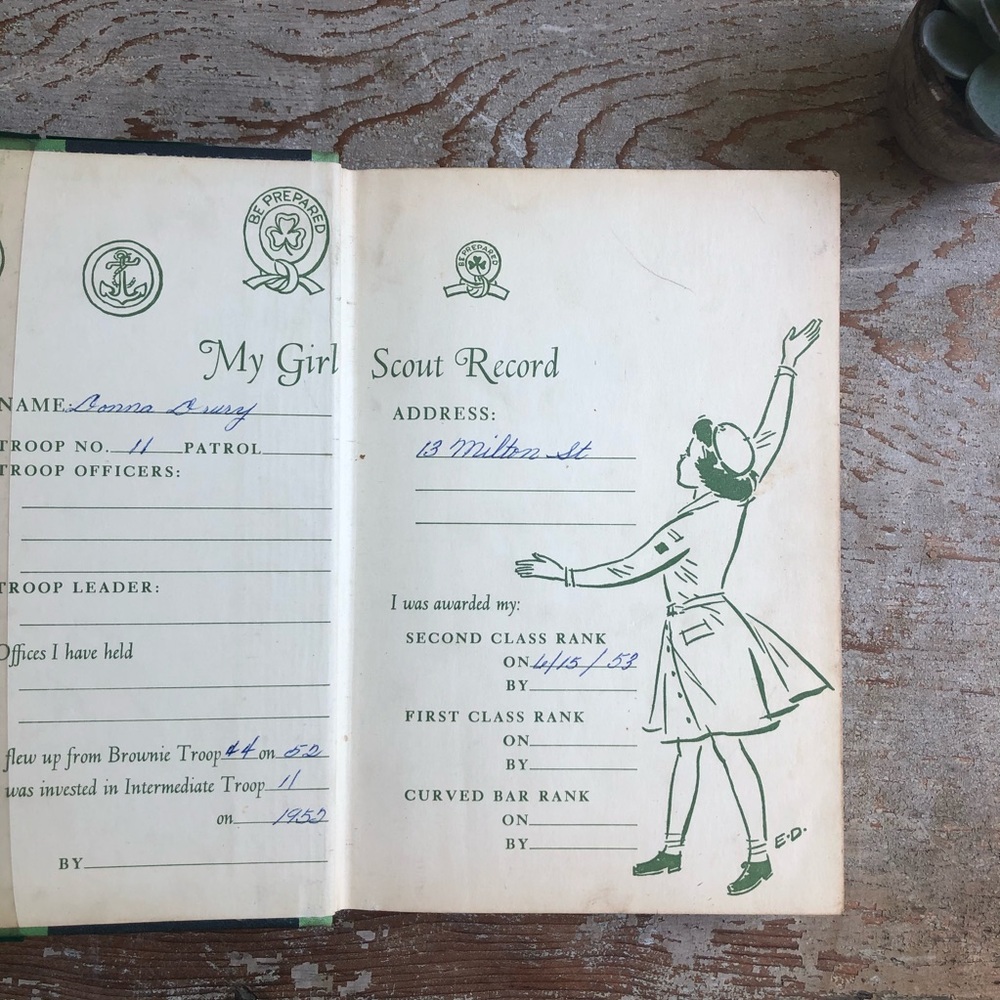 BE PREPARED
BE PREPARED
My Girl Scout Record
NAME: Donna Drury
TROOP NO. 11 PATROL
TROOP OFFICERS:
TROOP LEADER:
Offices I have held
flew up from Brownie Troop 44 on 52
was invested in Intermediate Troop 11
on 1952
BY
ADDRESS:
13 Milton St
I was awarded my:
SECOND CLASS RANK
ON 6/15/53
BY
FIRST CLASS RANK
ON
BY
CURVED BAR RANK
ON
BY
E.D.